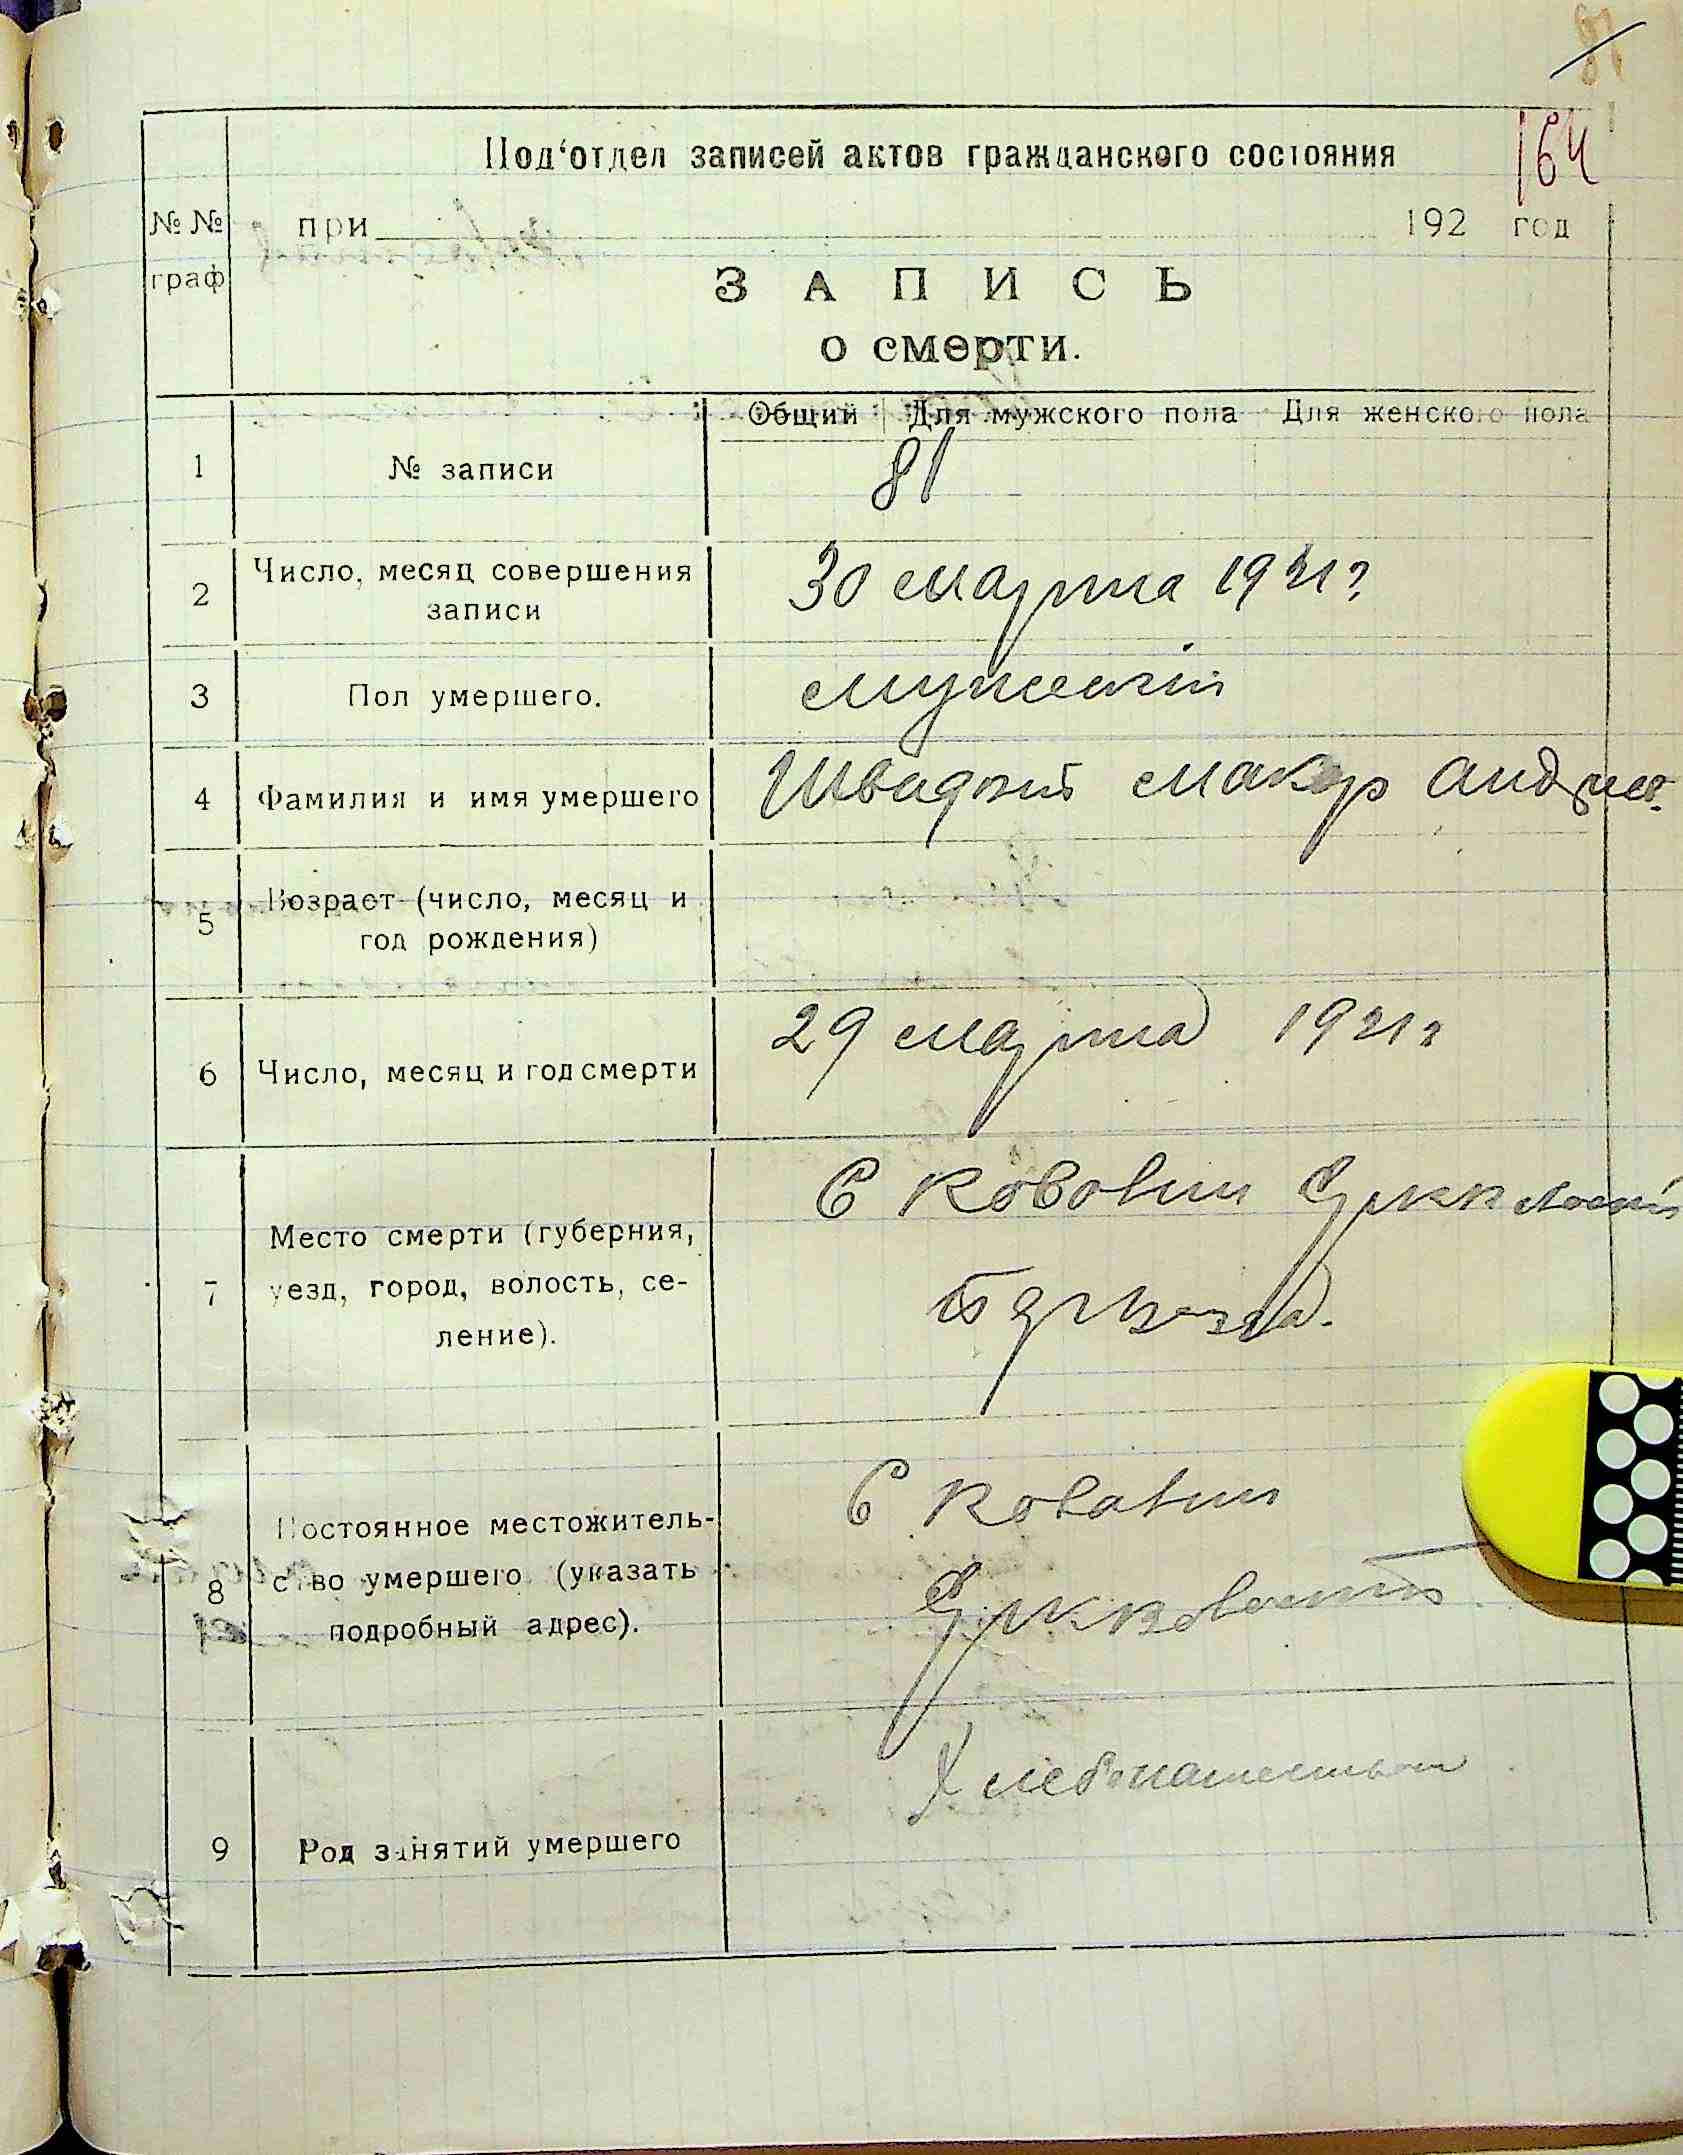 81
Под‘отдел записей актов гражданского состояния
164
№ №
граф
при 192 год
ЗАПИСЬ
о смерти.
Общий Для мужского пола Для женского пола
1 № записи 81
2 Число, месяц совершения
записи
30 марта 1921 г
3 Пол умершего. мужский
4 Фамилия и имя умершего Швадкий Макар Андрие.
5 Возраст (число, месяц и
год рождения)
6 Число, месяц и год смерти 29 марта 1921 г
7 Место смерти (губерния,
уезд, город, волость, се-
ление).
С Ковалин
8 Постоянное местожитель-
ство умершего (указать
подробный адрес).
С Ковалин
9 Род занятий умершего
Хлебопашеством